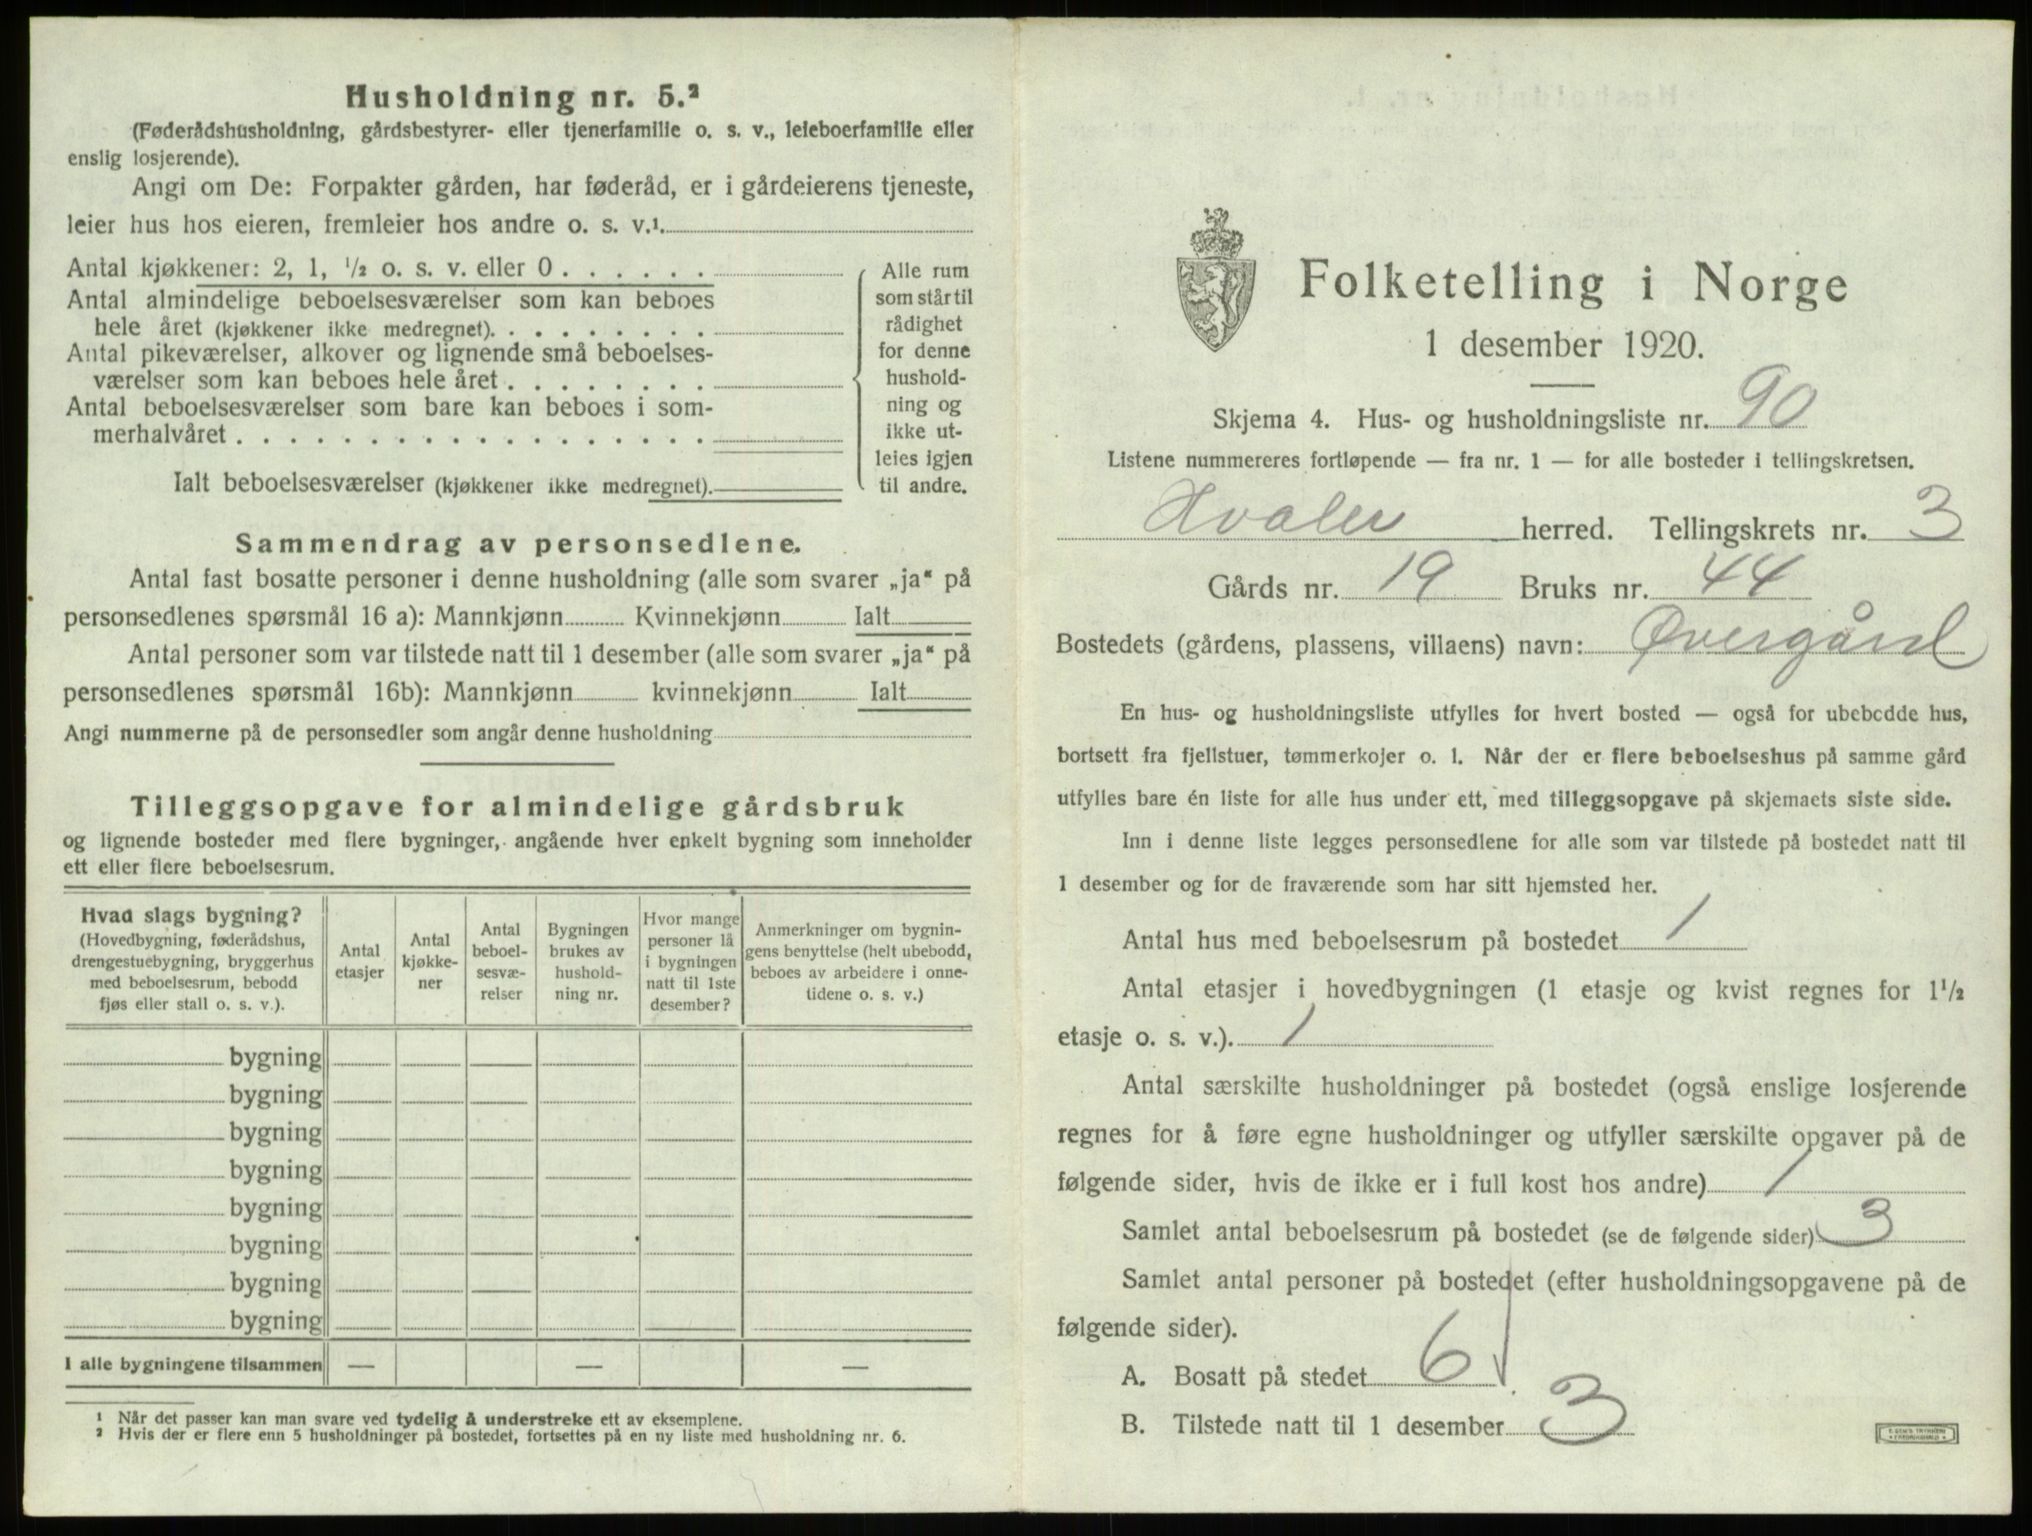 Husholdning nr. 5.²
(Føderådshusholdning, gårdsbestyrer- eller tjenerfamilie o. s. v., leieboerfamilie eller
enslig losjerende).
Angi om De: Forpakter gården, har føderåd, er i gårdeierens tjeneste,
leier hus hos eieren, fremleier hos andre o. s. v.¹
Antal kjøkkener: 2, 1, ½ o. s. v. eller 0 . . . . . .
Antal almindelige beboelsesværelser som kan beboes
hele året (kjøkkener ikke medregnet). . . . . . . . .
Antal pikeværelser, alkover og lignende små beboelses-
værelser som kan beboes hele året . . . . . . . .
Antal beboelsesværelser som bare kan beboes i som-
merhalvåret . . . . . . . . . . . . . . . . . .
Ialt beboelsesværelser (kjøkkener ikke medregnet).
Alle rum
som står til
rådighet
for denne
hushold-
ning og
ikke ut-
leies igjen
til andre.
Sammendrag av personsedlene.
Antal fast bosatte personer i denne husholdning (alle som svarer „ja“ på
personsedlenes spørsmål 16 a): Mannkjønn Kvinnekjønn Ialt
Antal personer som var tilstede natt til 1 desember (alle som svarer „ja“ på
personsedlenes spørsmål 16b): Mannkjønn kvinnekjønn Ialt
Angi nummerne på de personsedler som angår denne husholdning
Tilleggsopgave for almindelige gårdsbruk
og lignende bosteder med flere bygninger, angående hver enkelt bygning som inneholder
ett eller flere beboelsesrum.
Hvad slags bygning?
(Hovedbygning, føderådshus,
drengestuebygning, bryggerhus
med beboelsesrum, bebodd
fjøs eller stall o. s. v.).
Antal
etasjer
Antal
kjøkke-
ner
Antal
beboel-
sesvæ-
relser
Bygningen
brukes av
hushold-
ning nr.
Hvor mange
personer lå
i bygningen
natt til 1ste
desember?
Anmerkninger om bygnin-
gens benyttelse (helt ubebodd,
beboes av arbeidere i onne-
tidene o. s. v.)
bygning
bygning
bygning
bygning
bygning
bygning
bygning
bygning
I alle bygningene tilsammen — — —
¹ Når det passer kan man svare ved tydelig å understreke ett av eksemplene.
² Hvis der er flere enn 5 husholdninger på bostedet, fortsettes på en ny liste med husholdning nr. 6.
Folketelling i Norge
1 desember 1920.
Skjema 4. Hus- og husholdningsliste nr. 90
Listene nummereres fortløpende — fra nr. 1 — for alle bosteder i tellingskretsen.
Hvaler herred. Tellingskrets nr. 3
Gårds nr. 19 Bruks nr. 44
Bostedets (gårdens, plassens, villaens) navn: Øvergård
En hus- og husholdningsliste utfylles for hvert bosted — også for ubebodde hus,
bortsett fra fjellstuer, tømmerkojer o. l. Når der er flere beboelseshus på samme gård
utfylles bare én liste for alle hus under ett, med tilleggsopgave på skjemaets siste side.
Inn i denne liste legges personsedlene for alle som var tilstede på bostedet natt til
1 desember og for de fraværende som har sitt hjemsted her.
Antal hus med beboelsesrum på bostedet 1
Antal etasjer i hovedbygningen (1 etasje og kvist regnes for 1½
etasje o. s. v.). 1
Antal særskilte husholdninger på bostedet (også enslige losjerende
regnes for å føre egne husholdninger og utfyller særskilte opgaver på de
følgende sider, hvis de ikke er i full kost hos andre) 1
Samlet antal beboelsesrum på bostedet (se de følgende sider) 3
Samlet antal personer på bostedet (efter husholdningsopgavene på de
følgende sider).
A. Bosatt på stedet 6
B. Tilstede natt til 1 desember 3